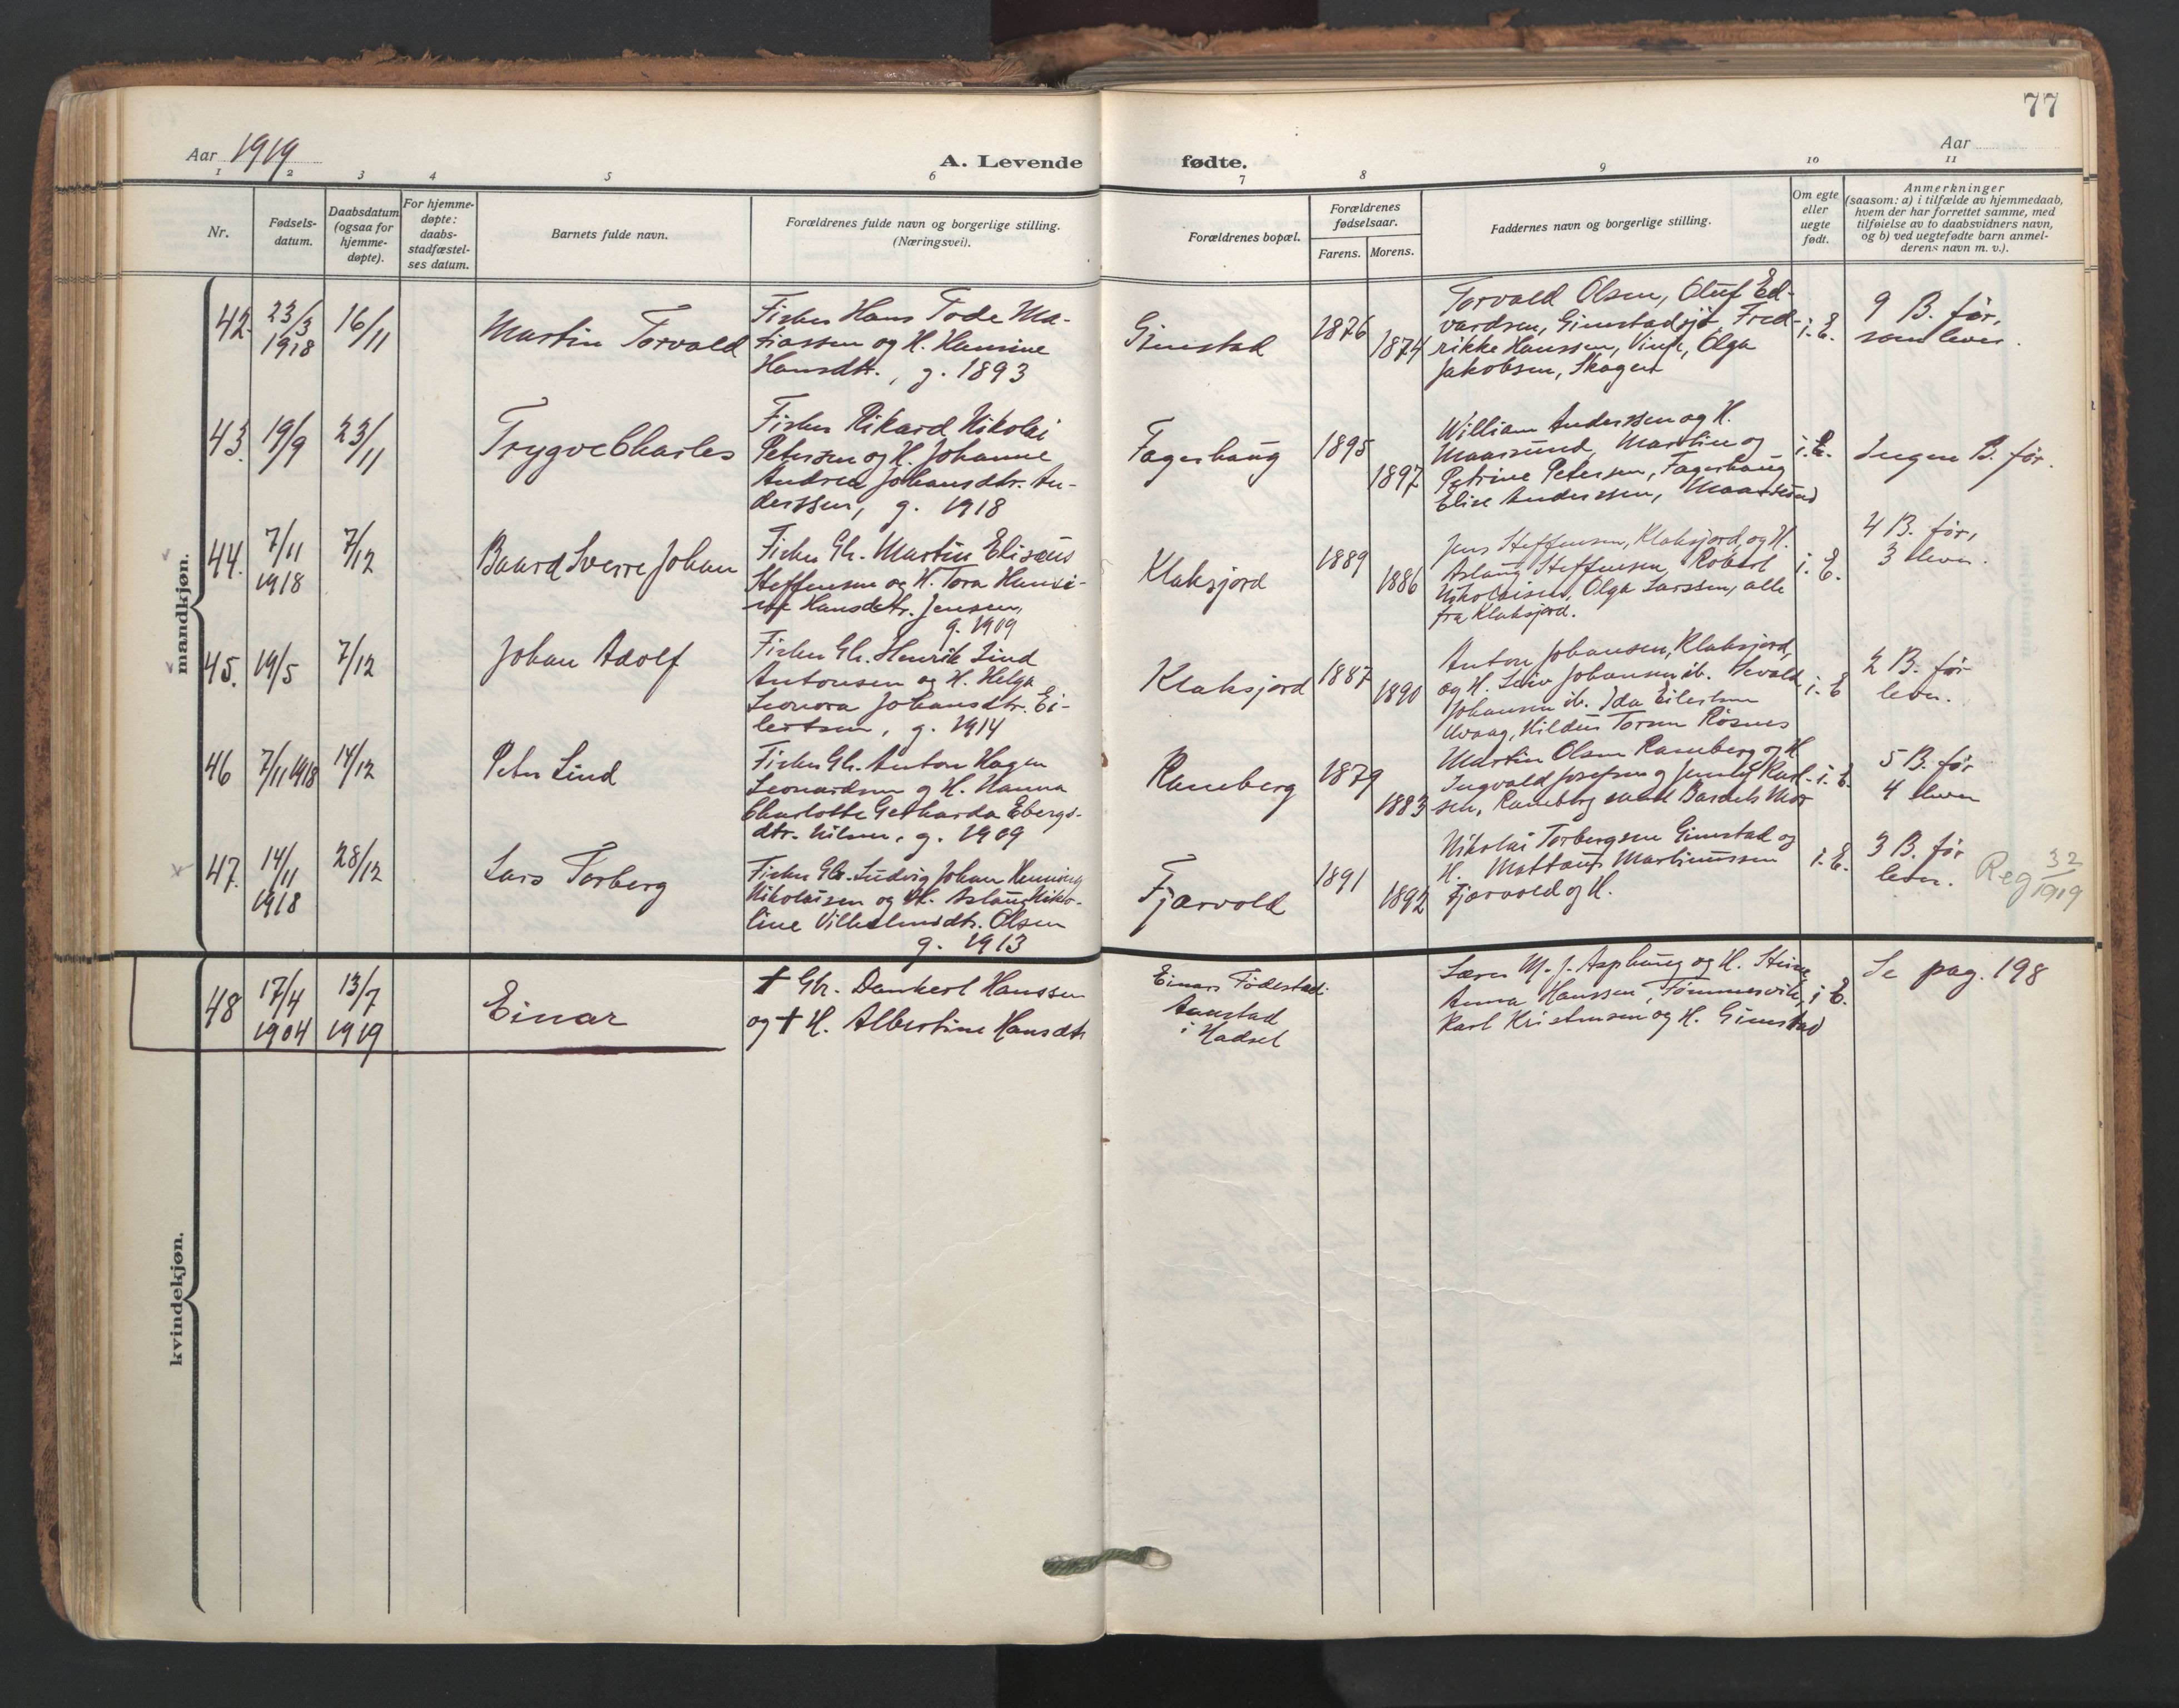 77
Aar 1919
A. Levende fødte.
Aar
1 2 3 4 5 6 7 8 9 10 11
Nr.
Fødsels-
datum.
Daabsdatum
(ogsaa for
hjemme-
døpte).
For hjemme-
døpte:
daabs-
stadfæstel-
ses datum.
Barnets fulde navn.
Forældrenes fulde navn og borgerlige stilling.
(Næringsvei).
Forældrenes bopæl.
Forældrenes
fødselsaar.
Farens. Morens.
Faddernes navn og borgerlige stilling.
Om egte
eller
uegte
født.
Anmerkninger
(saasom: a) i tilfælde av hjemmedaab,
hvem der har forrettet samme, med
tilføielse av to daabsvidners navn,
og b) ved uegtefødte barn anmel-
derens navn m. v.).
mandkjøn.
42.
23/3
1918
16/11
Martin Torvald
Fisker Hans Tode Ma-
tiassen og H. Hansine
Hansdtr., g. 1893
Gimstad
1876
1874
Torvald Olsen, Oluf Ed-
vardsen, Gimstadsjø, Fred-
rikke Hanssen, Vinje, Olga
Jakobsen, Skagen
i. E.
9 B. før,
som lever.
43.
19/9
23/11
Trygve Charles
Fisker Rikard Nikolai
Petersen og H. Johanne
Andrea Johansdtr. An-
derssen, g. 1918
Fagerhaug
1895
1897
William Anderssen og H.
Maarsund, Martin og
Petrine Petersen, Fagerhaug
Elise Anderssen, Maarsund
i. E.
Ingen B. før.
44.
7/11
1918
7/12
Baard Sverre Johan
Fisker Gbr. Martin Elisæus
Steffensen og H. Tora Hansi-
ne Hansdtr. Jensen,
g. 1909
Klaksjord
1889
1886
Jens Steffensen, Klaksjord, og H.
Aslaug Steffensen, Robert
Nikolaisen, Olga Larssen, alle
fra Klaksjord.
i. E.
4 B. før,
3 lever.
45.
19/5
7/12
Johan Adolf
Fisker Gbr. Henrik Lind
Antonsen og H. Helga
Leonora Johansdtr. Ei-
lertsen, g. 1914
Klaksjord
1887
1890
Anton Johansen, Klaksjord,
og H. Johansen ib.
Johansen ib. Ida Eilertsen
Torsen
i. E
2 B. før
lever.
46
7/11 1918
14/12
Peter Lind
Fisker Gbr. Anton Hagen
Leonardsen og H. Hanna
Charlotte Gerharda Ebergs-
dtr. Nilsen, g. 1909
Ramberg
1879
1883
Martin Olsen Ramberg og H
Ingvald Josefsen og Jenny Karl-
sen, Ramberg samt
i. E.
5 B. før
4 lever
47.
14/11
1918
28/12
Lars Torberg
Fisker Gbr. Ludvig Johan Henning
Nikolaisen og H. Aslaug Niko-
line Vilhelmsdtr. Olsen
g. 1913
Fjærvold
1891
1892
Nikolai Torbergsen Gimstad og
H. Mattæus Martinussen
Fjærvold og H.
i. E.
3 B. før
lever.
Reg 32/1919
kvindekjøn.
48
17/4
1904
13/7
1919
Einar
† Gbr. Dankert Hanssen
og † H. Albertine Hansdtr
Einars Fødested:
Aunstad
i Hadsel
Lærer M. J. Asphaug og H. Stene
Anna Hanssen, Tømmervik,
Karl Kristensen og H. Gimstad
i E.
Se pag. 198